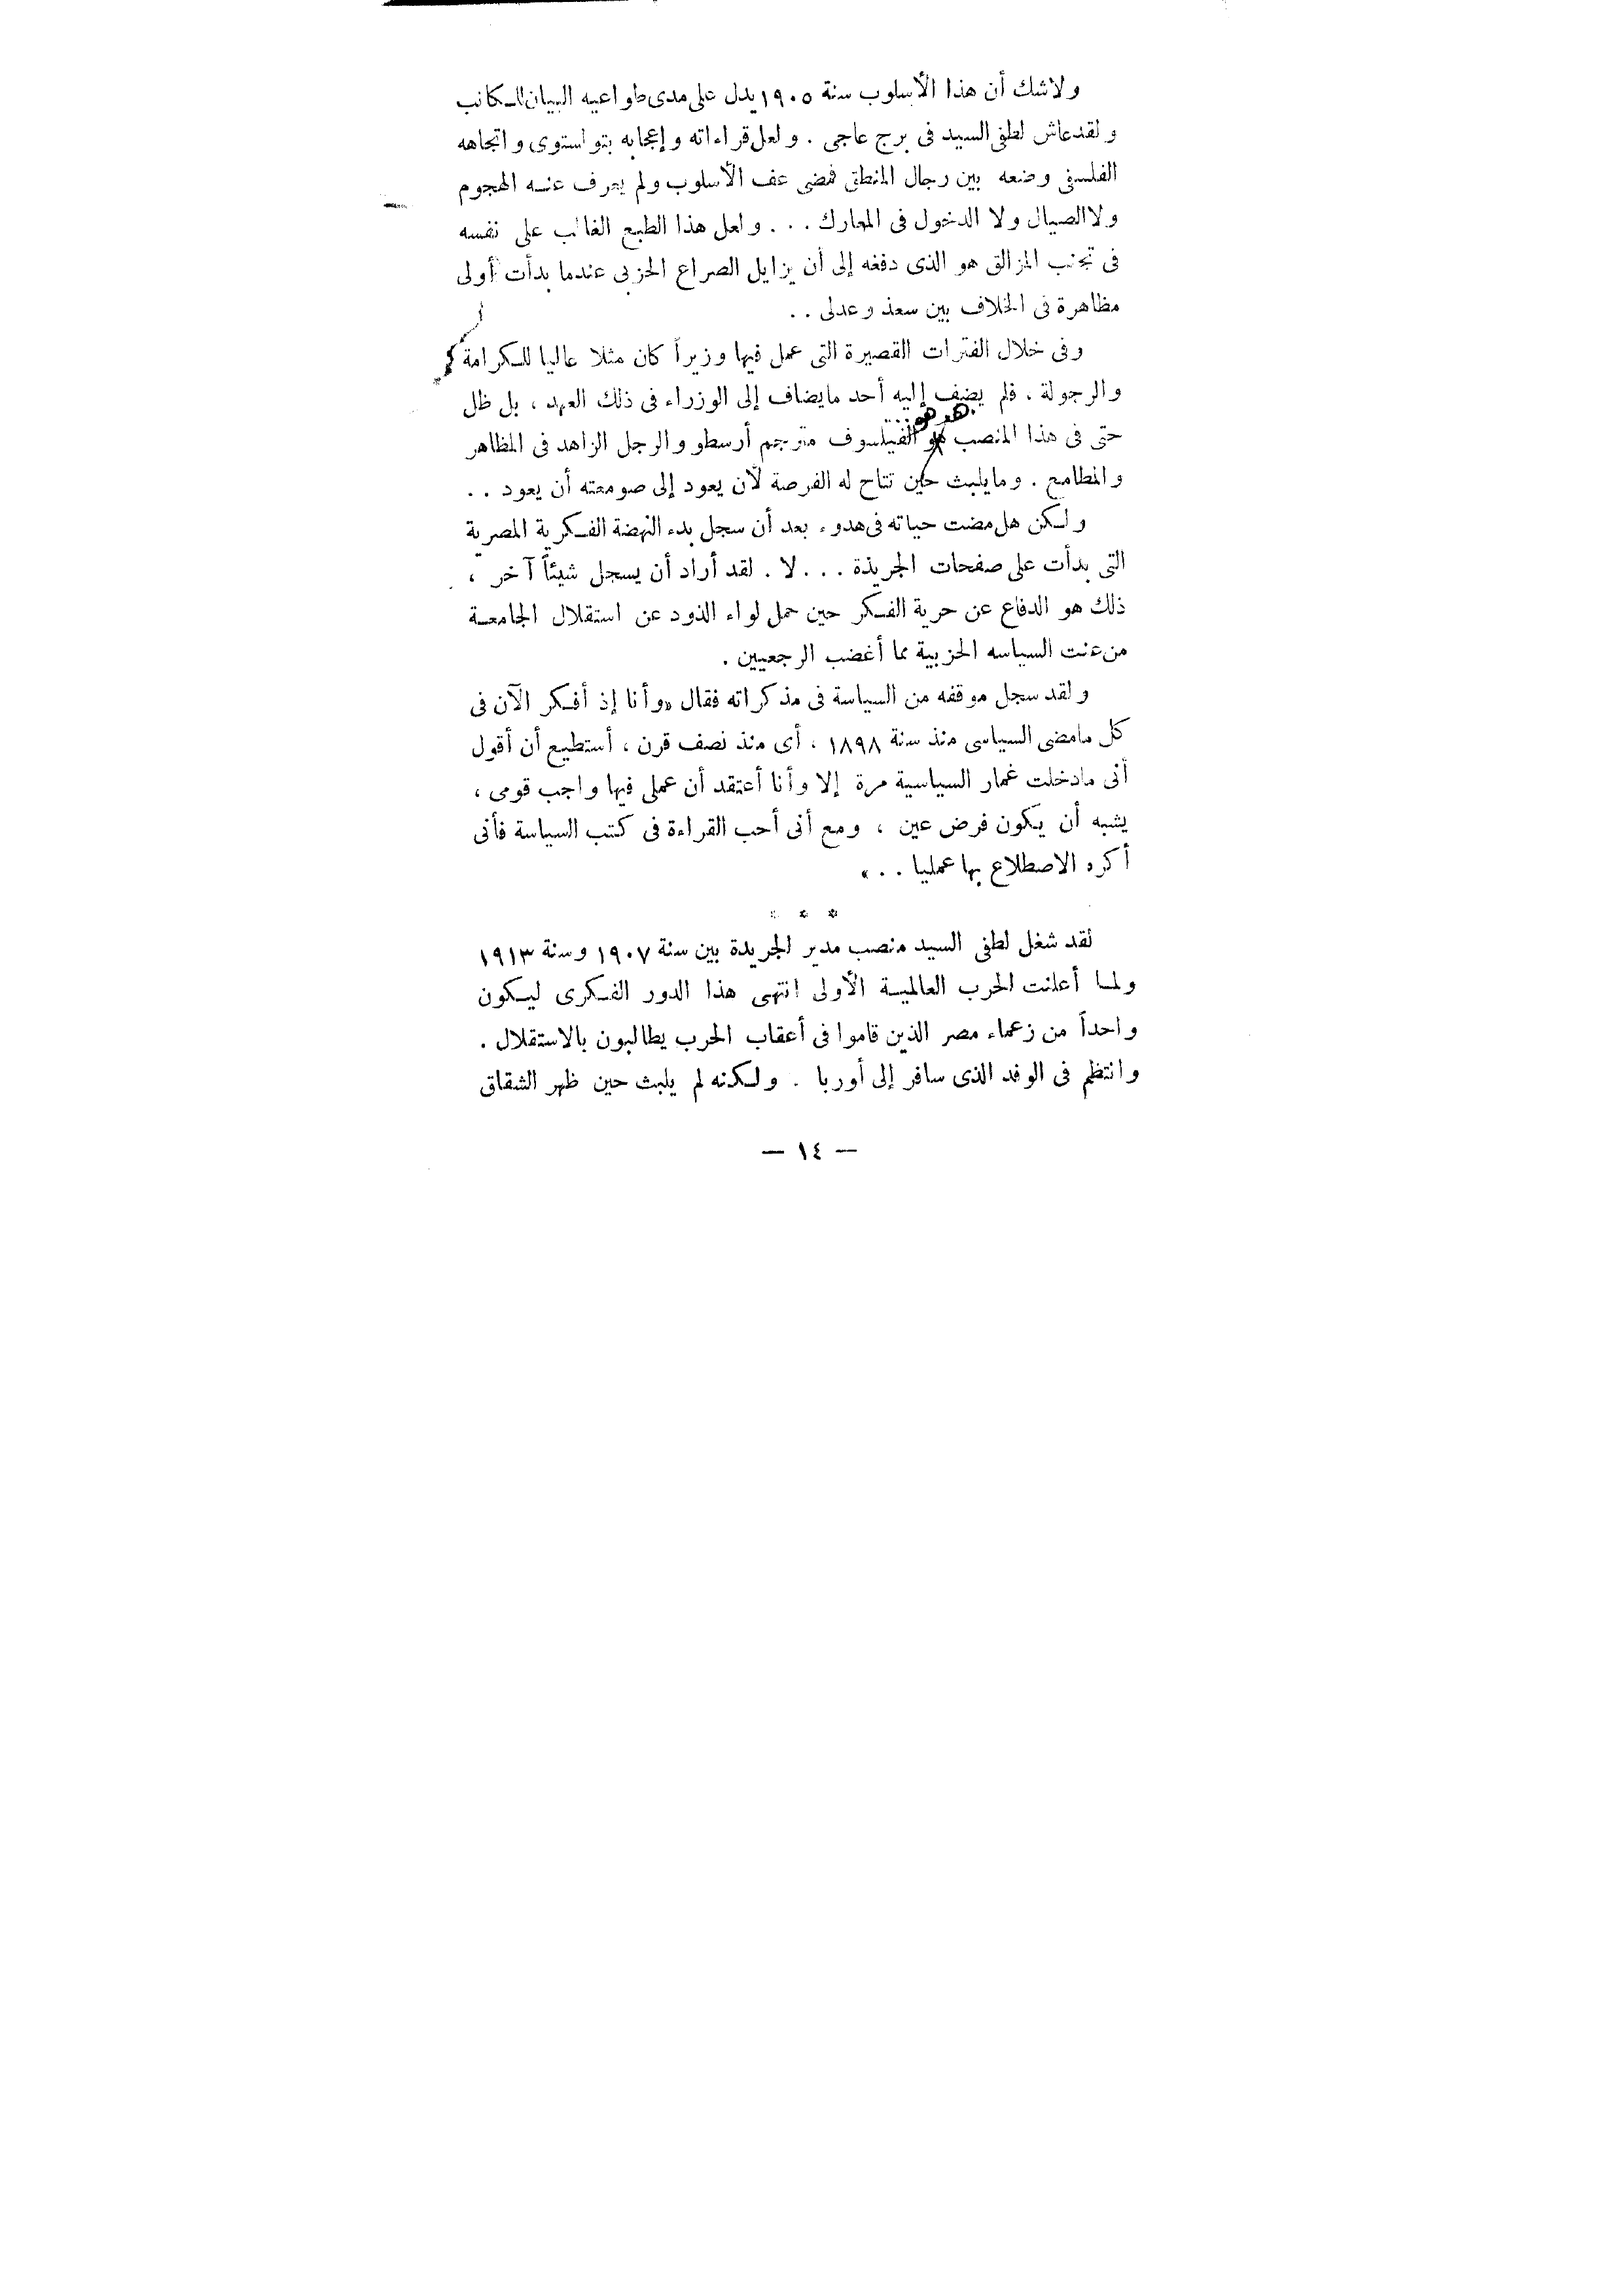 ولاشك أن هذا الأسلوب سنة ١٩٠٥ يدل على مدى طواعيه البيان للكاتب
ولقد عاش لطفى السيد فى برج عاجى . ولعل قراءاته وإعجابه بتولستوى واتجاهه
الفلسفى وضعه بين رجال المنطق فمضى عف الأسلوب ولم يعرف عنه الهجوم
ولا الصيال ولا الدخول فى المعارك . . . ولعل هذا الطبع الغالب على نفسه
فى تجنب المزالق هو الذى دفعه إلى أن يزايل الصراع الحزبى عندما بدأت أولى
مظاهرة فى الخلاف بين سعد وعدلى . .
وفى خلال الفترات القصيرة التى عمل فيها وزيراً كان مثلا عاليا للكرامة
والرجولة . فلم يضف إليه أحد مايضاف إلى الوزراء فى ذلك العهد ، بل ظل
حتى فى هذا المنصب هو الفيلسوف مترجم أرسطو والرجل الزاهد فى المظاهر
والمطامع . ومايلبث حين تتاح له الفرصة لأن يعود إلى صومعته أن يعود . .
ولكن هل مضت حياته فى هدوء بعد أن سجل بدء النهضة الفكرية المصرية
التى بدأت على صفحات الجريدة . . . لا . لقد أراد أن يسجل شيئاً آخر ،
ذلك هو الدفاع عن حرية الفكر حين حمل لواء الذود عن استقلال الجامعة
من عنت السياسه الحزبية مما أغضب الرجعيين .
ولقد سجل موقفه من السياسة فى مذكراته فقال «وأنا إذ أفكر الآن فى
كل مامضى السياسى منذ سنة ١٨٩٨ ، أى منذ نصف قرن ، أستطيع أن أقول
أنى مادخلت غمار السياسية مرة إلا وأنا أعتقد أن عملى فيها واجب قومى ،
يشبه أن يكون فرض عين ، ومع أنى أحب القراءة فى كتب السياسة فأنى
أكره الاصطلاع بها عمليا . . »
* * *
لقد شغل لطفى السيد منصب مدير الجريدة بين سنة ١٩٠٧ وسنة ١٩١٣
ولما أعلنت الحرب العالمية الأولى انتهى هذا الدور الفكرى ليكون
واحداً من زعماء مصر الذين قاموا فى أعقاب الحرب يطالبون بالاستقلال .
وانتظم فى الوفد الذى سافر إلى أوربا . ولكنه لم يلبث حين ظهر الشقاق
— ١٤ —